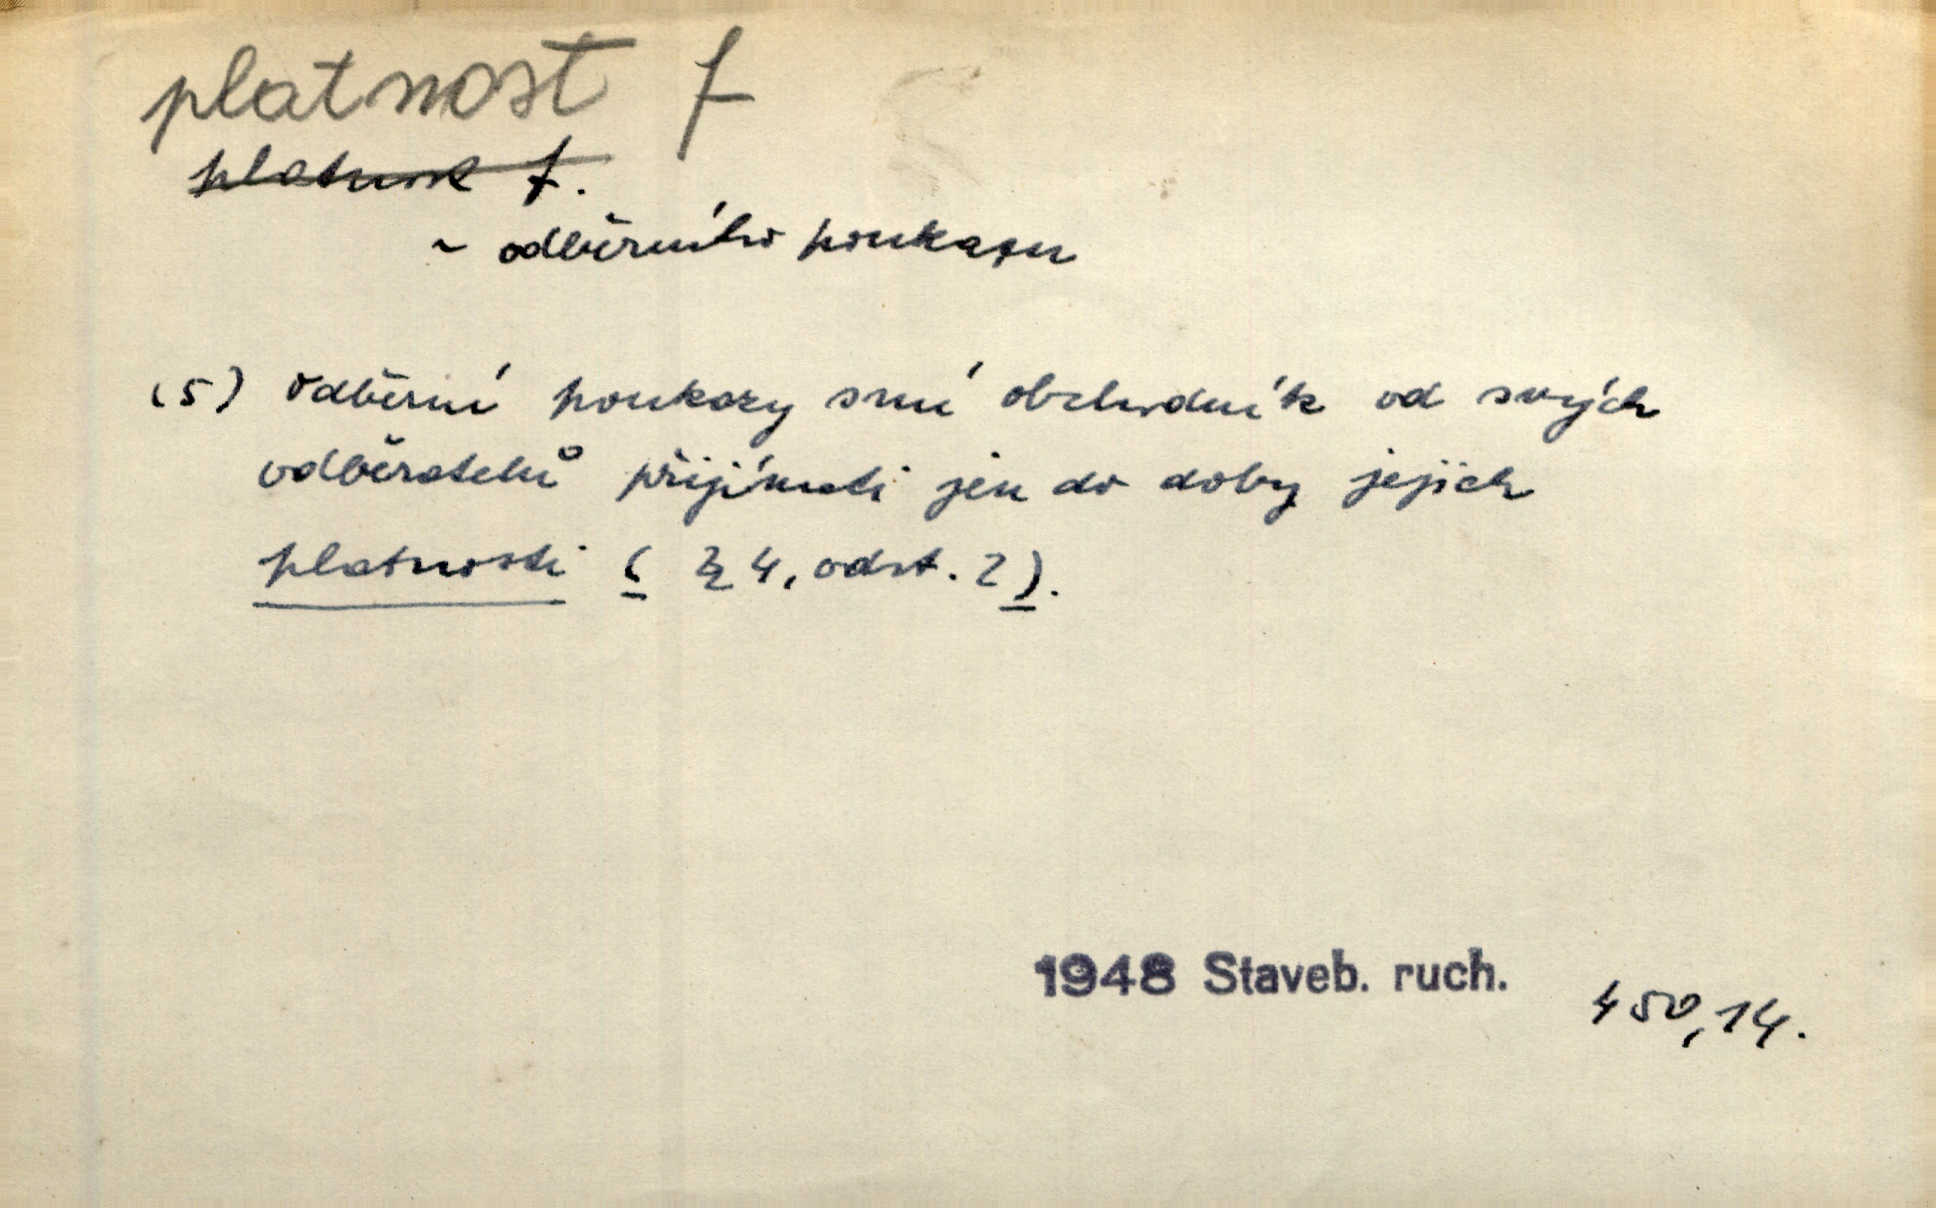 platnost f
platnost f.
~ odběrního poukazu
(5) Odběrní poukazy smí obchodník od svých
odběratelů přijímati jen do doby jejich
platnosti (§ 4, odst. 2).
1948 Staveb. ruch.
450,14.